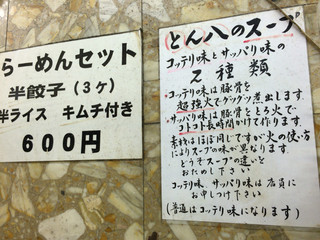 らーめんセット
半餃子(3ヶ)
半ライス キムチ付き
600円
とん八のスープ
コッテリ味とサッパリ味の
2種類
コッテリ味は豚骨を
超強火でグツグツ煮出します。
サッパリ味は豚骨をとろ火で
コトコト長時間かけて作ります。
素材はほぼ同じですが火の使い方
によりスープの味が異なります。
どうぞスープの違いを
おためし下さい
コッテリ味、サッパリ味は店員に
お申しつけ下さい
(普通はコッテリ味になります)